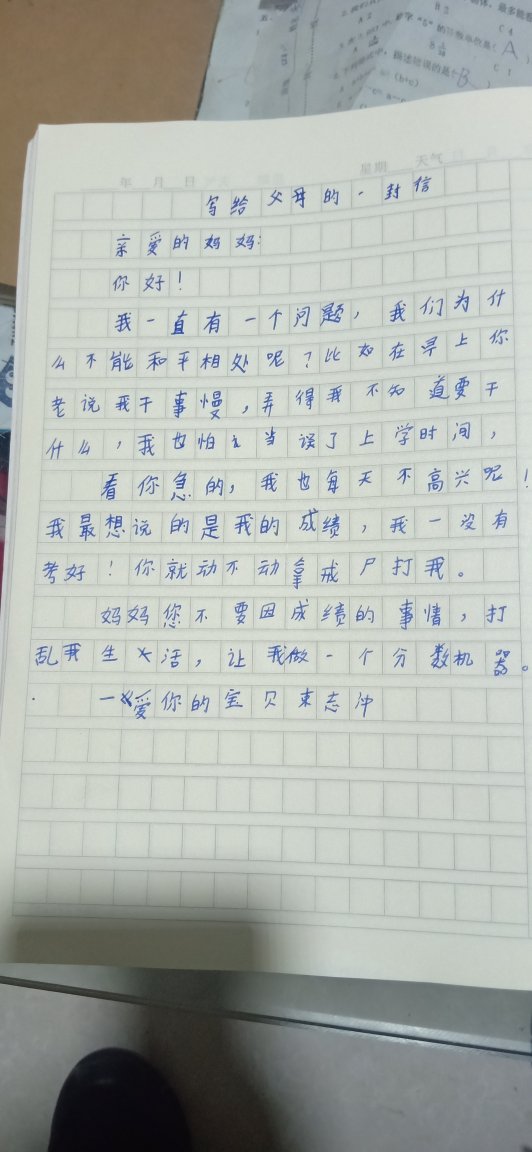 最多能看
B 2
C 4
的计数单位是( A )
C 1
描述错误的是( B )
(b+c)
年 月 日
星期 天气
写给父母的一封信
亲爱的妈妈:
你好!
我一直有一个问题,我们为什
么不能和平相处呢?比如在早上你
老说我干事慢,弄得我不知道要干
什么,我也怕当误了上学时间,
看你急的,我也每天不高兴呢!
我最想说的是我的成绩,我一没有
考好!你就动不动拿戒尸打我。
妈妈您不要因成绩的事情,打
乱我生活,让我做一个分数机器。
一爱你的宝贝束志冲